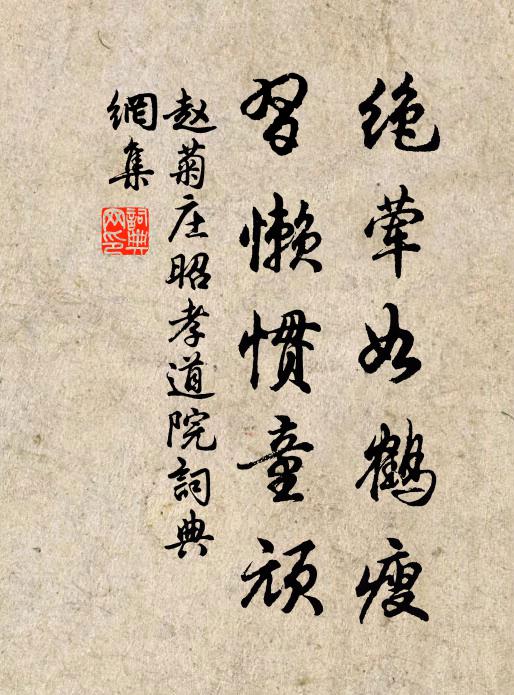 绝荤如鹤瘦
习懒惯童顽
赵菊庄昭孝道院詞典
網集
詞典
网印